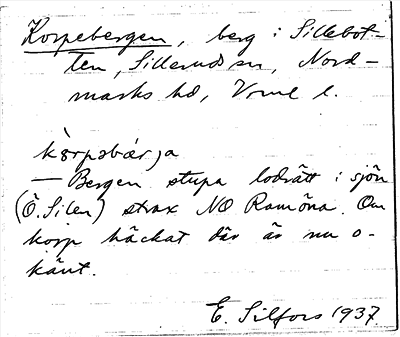 Korpebergen, berg i Sillebot-
ten, Sillerud sn, Nord-
marks hd, Vrml l.
kȯrpəbár̨ja
— Bergen stupa lodrätt i sjön
(Ö. Silen) strax NO Ramöna. Om
korp häckat där är nu o-
känt.
E. Silfors 1937